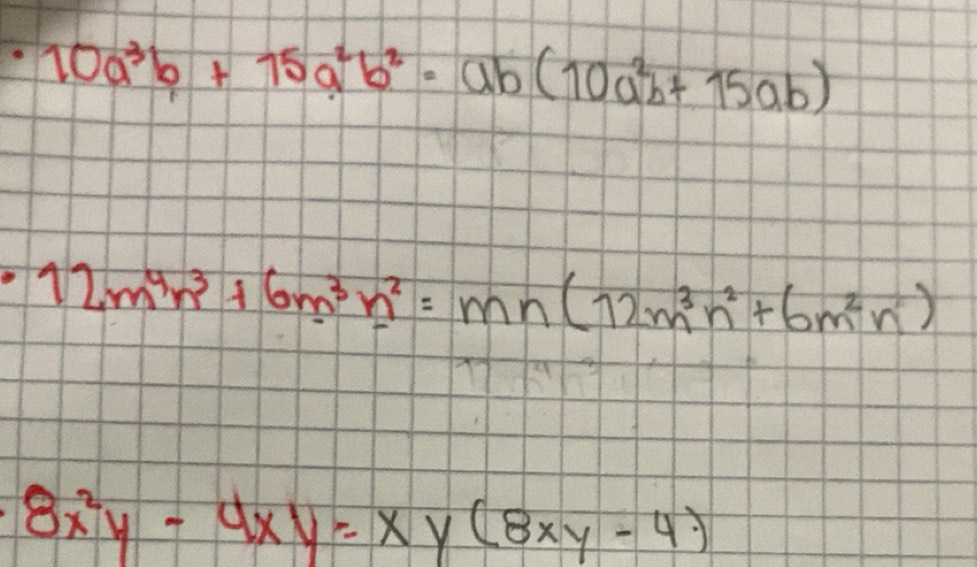 • 10a³b + 15a²b² = ab(10a²b + 15ab)
• 12m⁴n³ + 6m³n² = mn(12m³n² + 6m²n)
• 8x²y - 4xy = xy(8xy - 4)